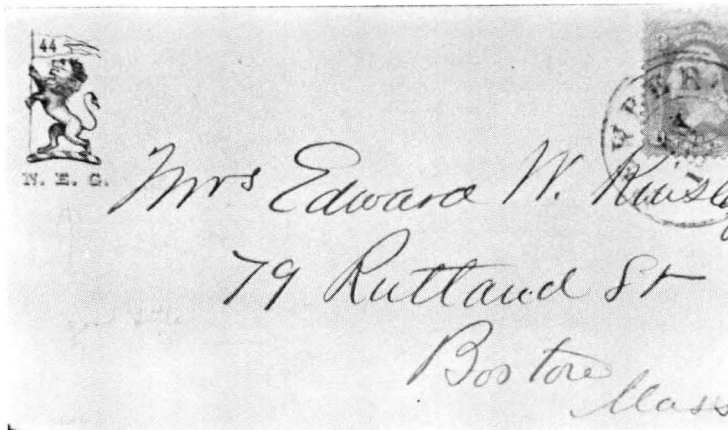 44
N. E. G.
Mrs Edward W. Kinsley
79 Rutland St
Boston
Mass